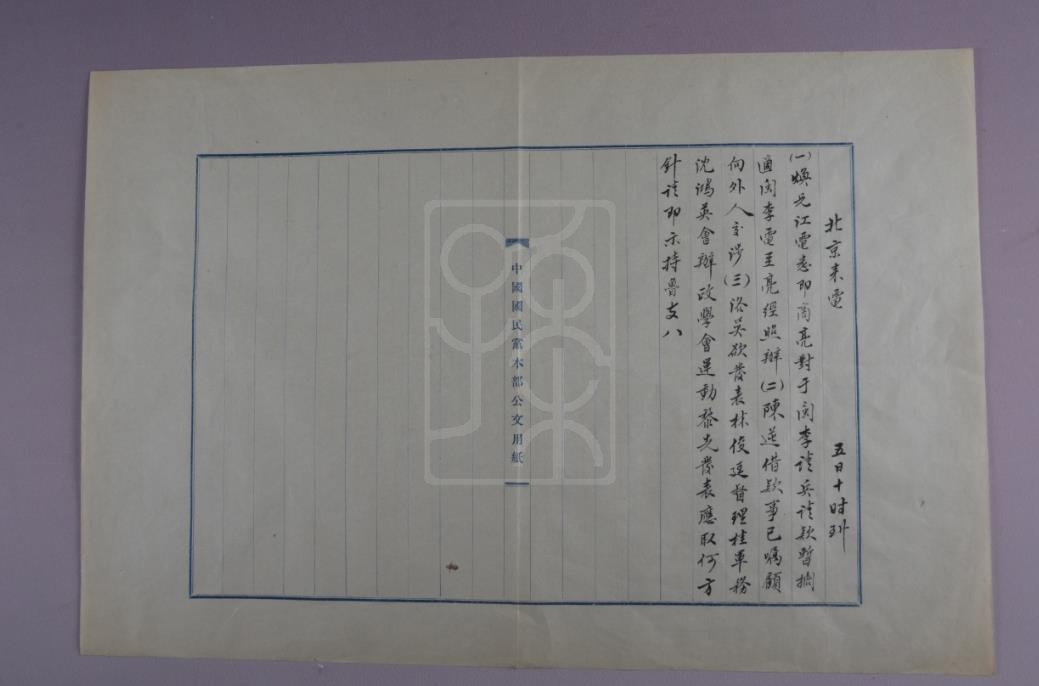 北京来電 五日十时到
(一)煥兄江電悉即商亮對于閩李請兵請欵暫擱
適閩李電至亮經照辦(二)陳逆借欵事已囑顧
向外人交涉(三)洛吳欲發表林俊廷督理桂軍務
沈鴻英會辦政學會運動黎先發表應取何方
針請即示持魯支八
中國國民黨本部公文用紙